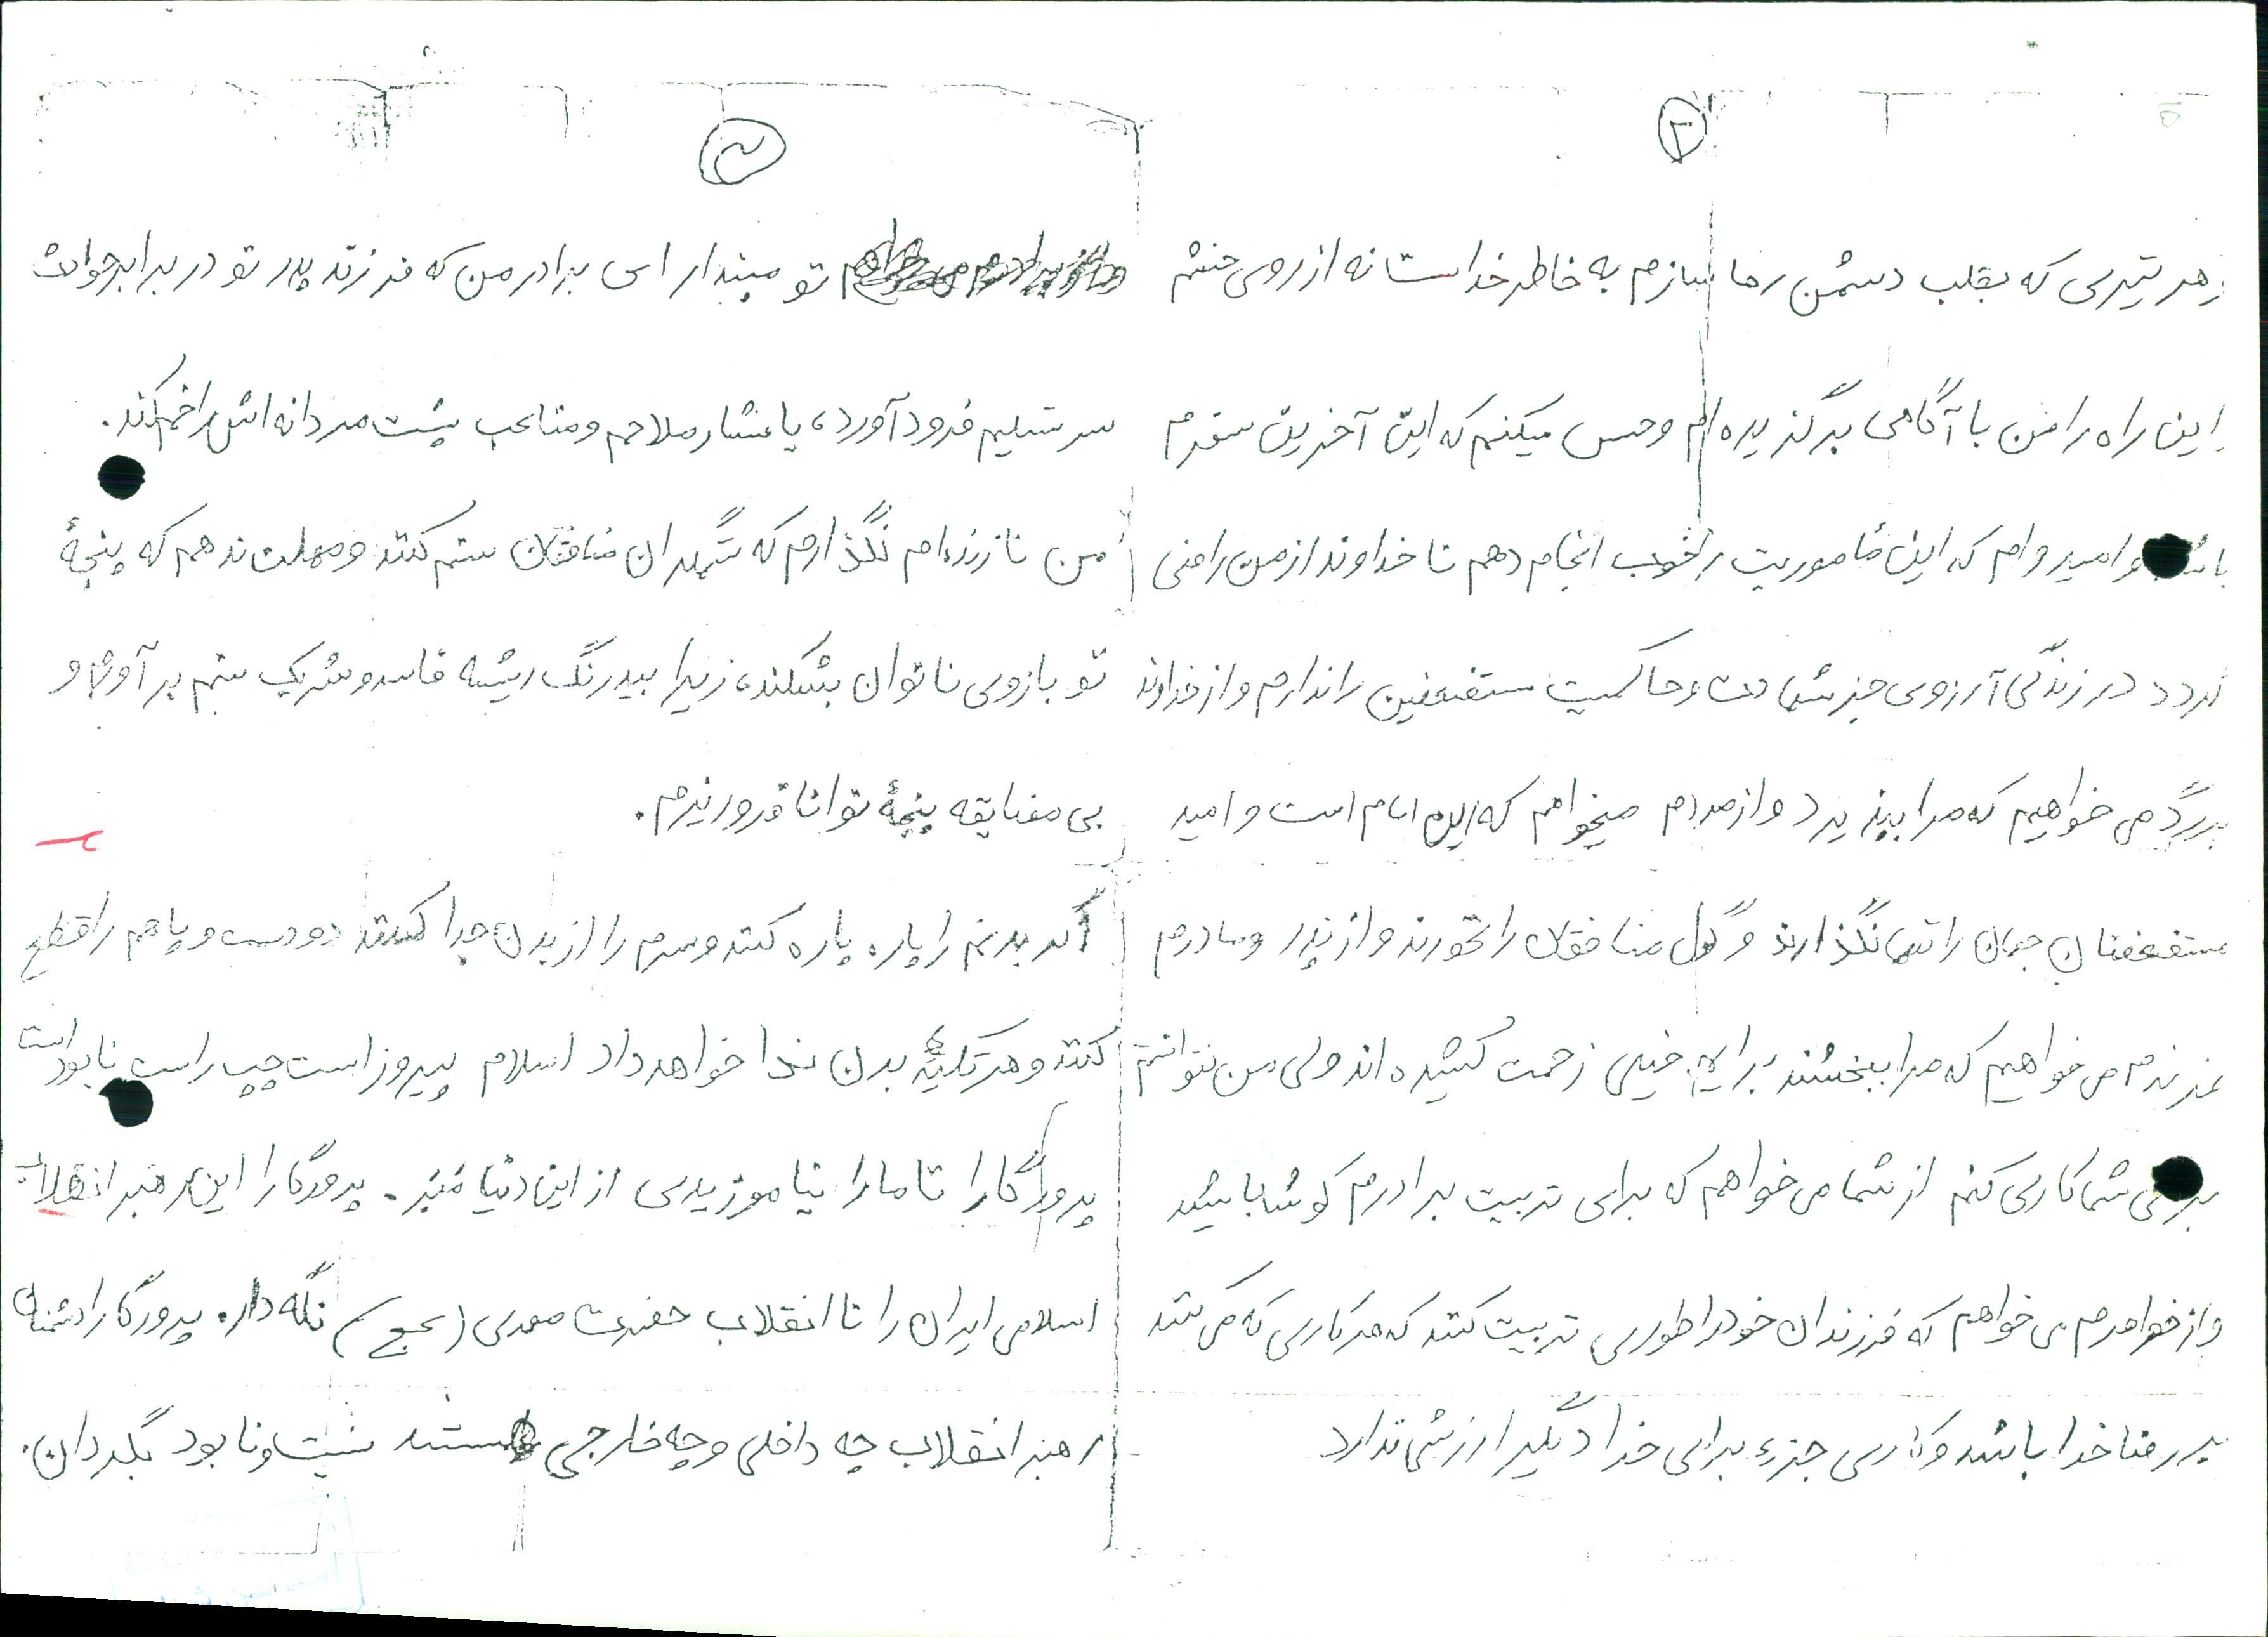 ۲
هر تیری که بقلب دشمن رها سازم به خاطر خداست نه از روی خشم
این راه را من با آگاهی برگزیده ام و حس میکنم که این آخرین سفرم
باشد و امیدوام که این مأموریت را خوب انجام دهم تا خداوند از من راضی
گردد در زندگی آرزوی جز شهادت و حاکمیت مستضعفین را ندارم و از خداوند
بزرگ می خواهیم که مرا بپذیرد و از مردم میخواهم که امام است و امید
مستضعفان جهان را تنها نگذارند و گول منافقان را نخورند و از پدر و مادرم
عزیزم می خواهیم که مرا ببخشند برایم خیلی زحمت کشیده اند ولی من نتوانستم
برای شما کاری کنم از شما می خواهم که برای تربیت برادرم کوشا باشید
و از خواهرم می خواهم که فرزندان خود را طوری تربیت کنند که هر کاری که می کنند
بر رضا خدا باشد و کاری جزء برای خدا دیگر ارزشی ندارد
۳
تو مپندار ای برادر من که فرزند پدر تو در برابر حوادث
سر تسلیم فرود آورد، یا فشار ملاحم و متاعب پشت مردانه اش را خم کند.
من تا زنده ام نگذارم که ستمگران منافقان ستم کنند و مهلت ندهم که پنجهٔ
تو بازوی ناتوان بشکند، زیرا بیدرنگ ریشه فاسد و شریک ستم بر آورم و
بی مضایقه پنجهٔ توانا فرو ریزم.
اگر بدنم را پاره پاره کنند و سرم را از بدن جدا کنند دو دست و پاهم را قطع
کنند و هر تکیهٔ بدن ندا خواهد داد اسلام پیروز است چپ راست نابود است
پروردگارا تا ما را نیاموزیدی از این دنیا مبر. پروردگارا این رهبر انقلاب
اسلامی ایران را تا انقلاب حضرت مهدی (عج) نگه دار. پرورگارا دشمنان
رهبر انقلاب چه داخلی و چه خارجی هستند نیست و نابود بگردان.